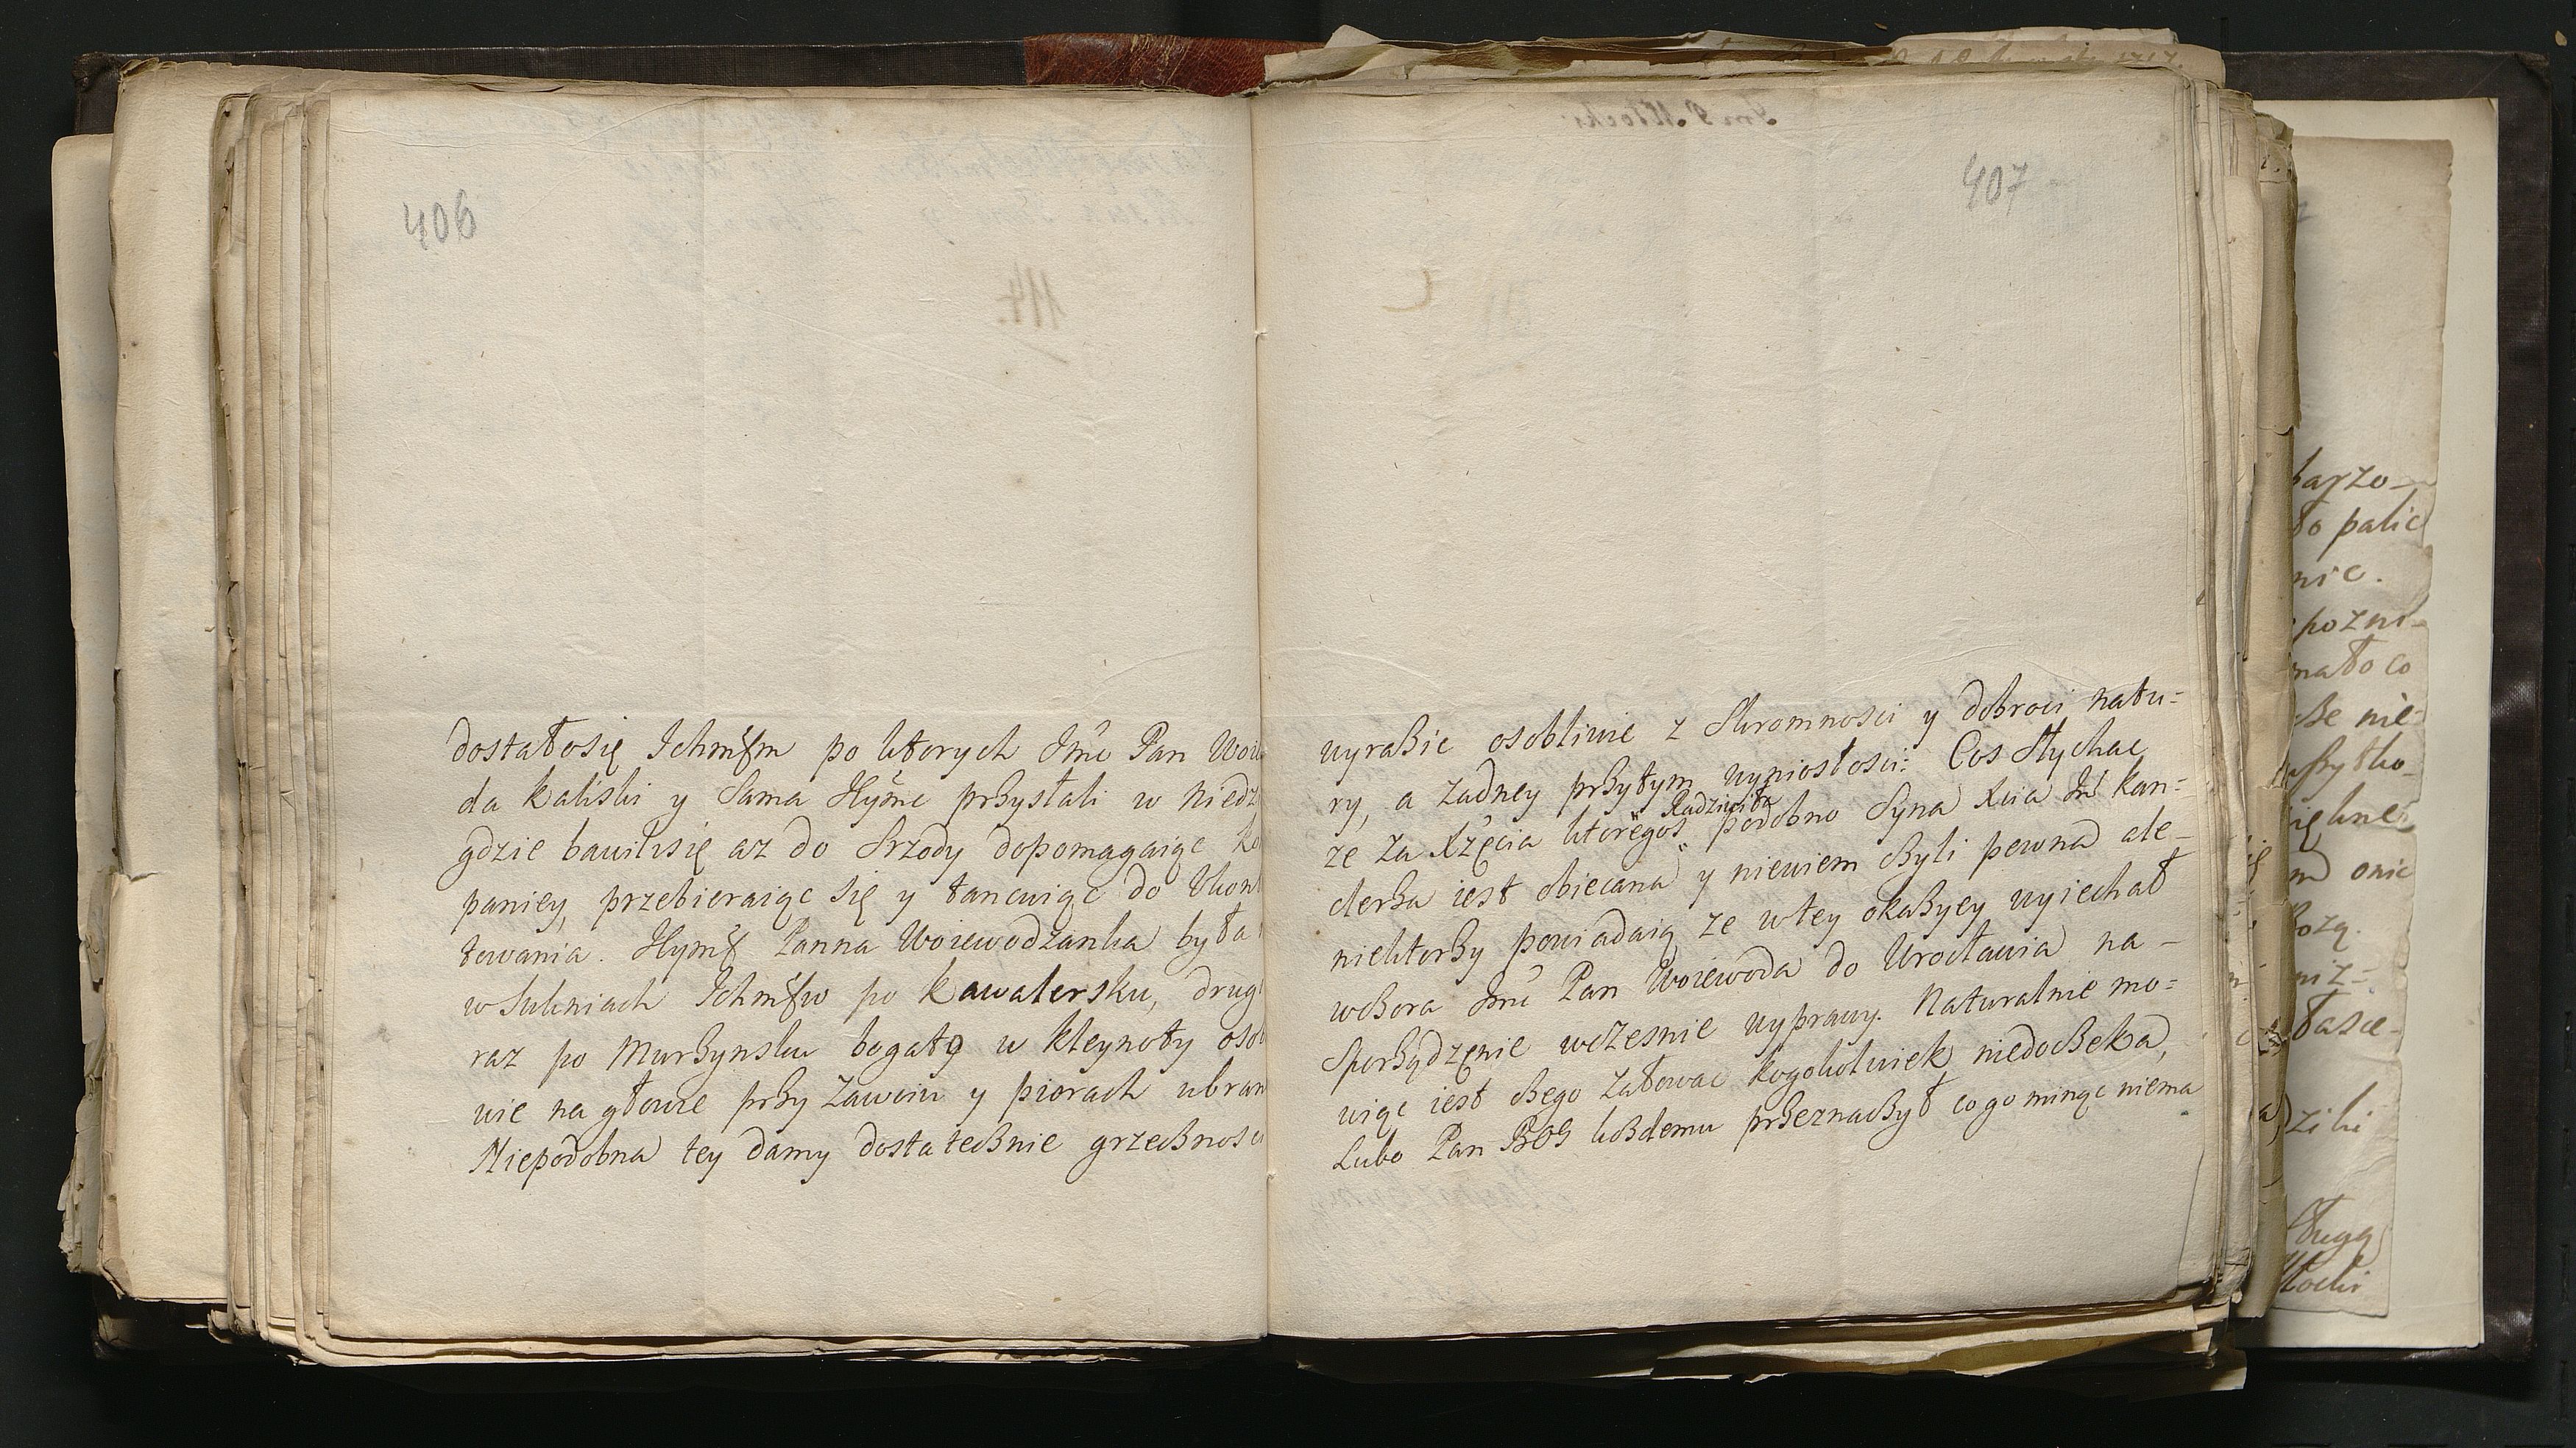 406
dostałosię Ichmśm po ktorych Jmć Pan Woie
da kaliski y Sama Jeymć przystali w niedz
gdzie bawilisię az do Srzody dopomagaiąc ko
paniey, przebieraiąc się y tancuiąc do Ukont
towania. Jeymś Panna Woiewodzanka była
w Sukniach Ichmśw po kawalersku, drugi
raz po Murzynsku bogato w kleynoty osob
wie na głowie przy Zawoiu y piorach ubran
Niepodobna tey damy dostatecznie grzecznosci
407
wyrazic osobliwie z Skromnosci y dobroci natu=
ry, a zadney przytym wyniosłosci: Cos słychac
Radziwiła
ze za Xzęcia ktoregos podobno Syna Xcia Jmć kan=
clerza iest obiecana y niewiem czyli pewna ale-
niektorzy powiadaią ze wtey okazyey wyiechał
wczora Jmć Pan Woiewoda do Wrocławia na-
Sporządzęnie wczesnie wyprawy. Naturalnie mo=
wiąc iest czego załowac kogokolwiek niedoczeka,
Lubo Pan BOG kozdemu przeznaczył co go minąc niema
barzo-
palic
nic.
pozni-
mało co
nie=
onic
łasce-